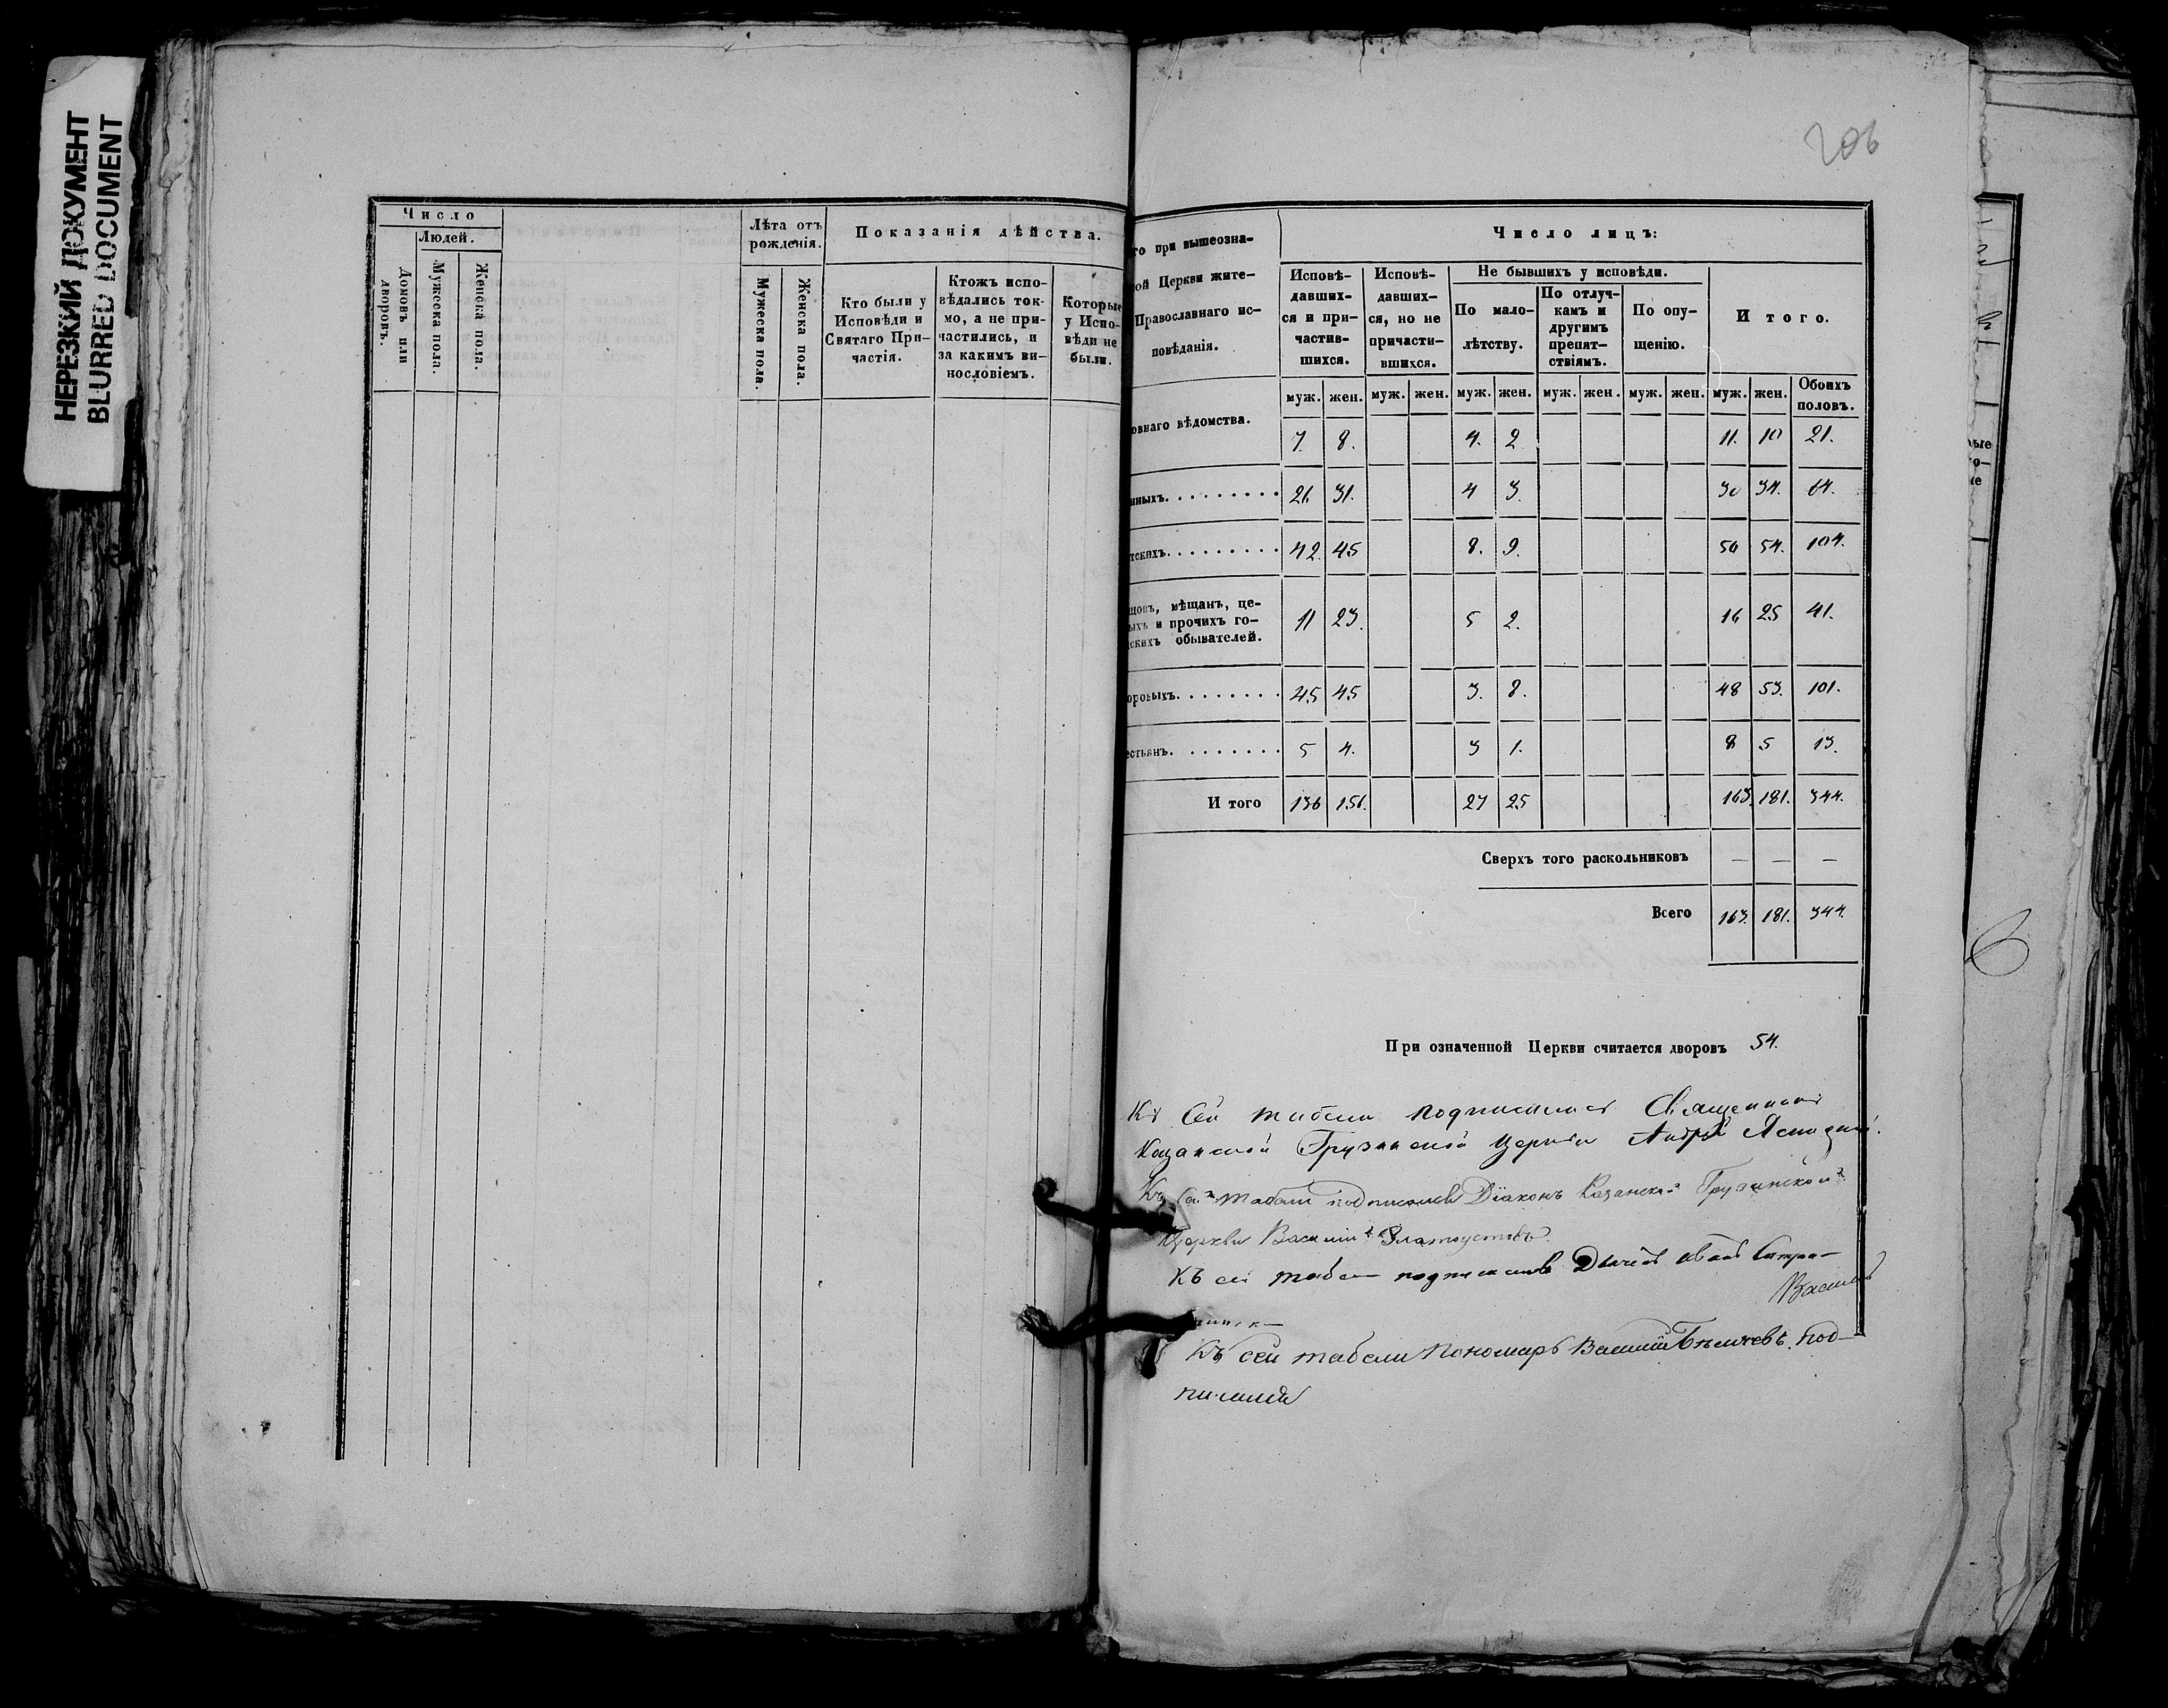 НЕРЕЗКИЙ ДОКУМЕНТ
BLURRED DOCUMENT
Число
Людей.
Домовъ или дворовъ.
Мужеска пола.
Женска пола.
Лѣта отъ рожденія.
Мужеска пола.
Женска пола.
Показанія дѣйства.
Кто были у
Исповѣди и
Святаго При-
частія.
Ктожъ испо-
вѣдались ток-
мо, а не при-
частились, и
за какимъ ви-
нословіемъ.
Которые
у Испо-
вѣди не
были.
206
го при вышеозна-
ой Церкви жите-
Православнаго ис-
повѣданія.
Число лицъ:
Исповѣ-
давших-
ся и при-
частив-
шихся.
Исповѣ-
давших-
ся, но не
причасти-
вшихся.
Не бывшихъ у исповѣди.
По мало-
лѣтству.
По отлуч-
камъ и
другимъ
препят-
ствіямъ.
По опу-
щенію.
И того.
муж. жен. муж. жен. муж. жен. муж. жен. муж. жен. муж. жен. Обоихъ половъ.
овнаго вѣдомства. 7. 8. 4. 2 11. 10 21.
нныхъ. 31. 4 3. 30 34. 64.
тскихъ. 42. 45 8. 9. 50 54. 104.
цовъ, мѣщанъ, це-
ыхъ и прочихъ го-
скихъ обывателей. 11 23. 5 2. 16 25 41.
оровыхъ. 45 45 3. 8. 48 53. 101.
естьянъ. 5 4. 3 1. 8 5 13.
И того 136 156. 27 25 163. 181. 344.
Сверхъ того раскольниковъ — — —
Всего 163. 181. 344.
При означенной Церкви считается дворовъ 54.
Къ Сей табели подписался Священникъ
Казанской Грузинской Церкви Андрей
Къ сей табели подписался Діаконъ Казанской Грузинской
Церкви Василий Златоустовъ.
Къ сей табели подписался Дьячекъ Иванъ
Къ сей табели Пономарь Василий под-
писался